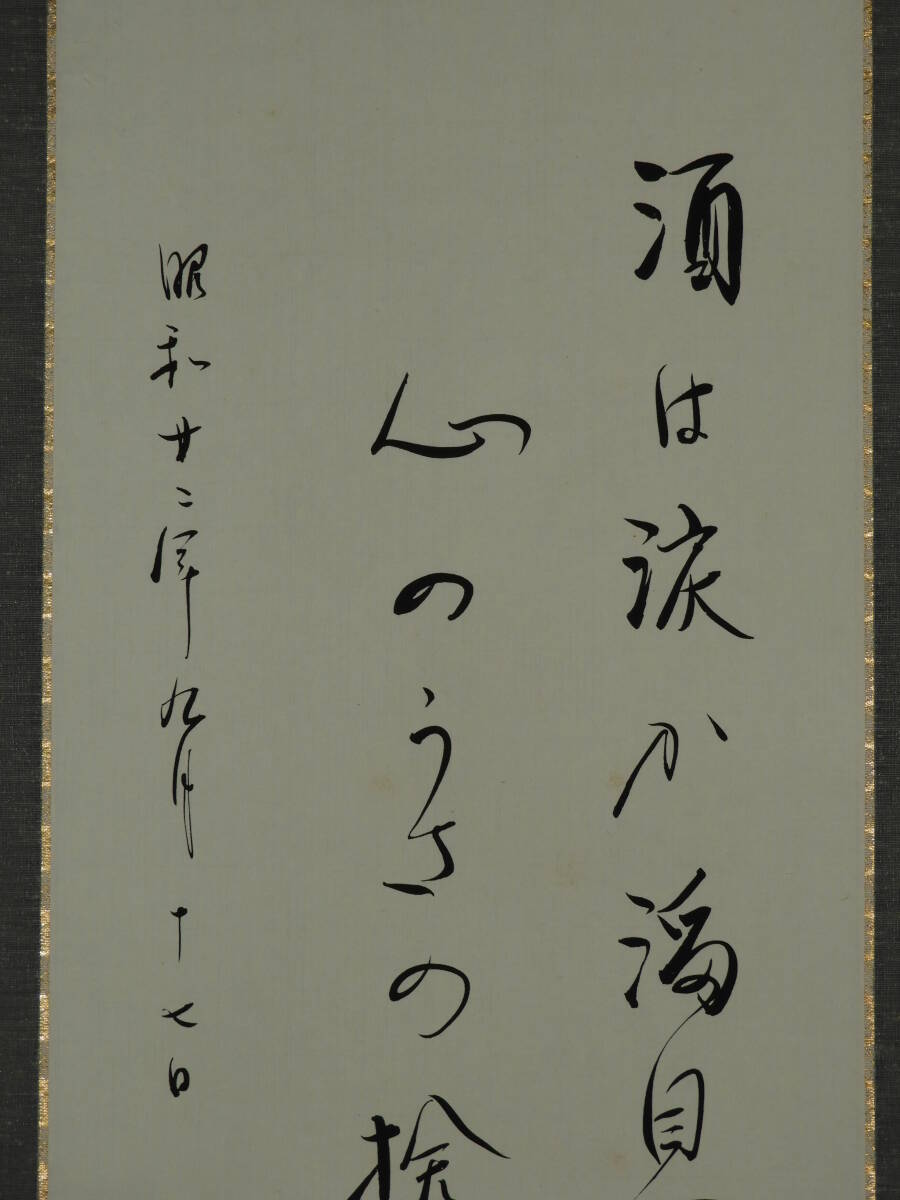 酒は涙か溜息
心のうさの捨
昭和廿二年九月十七日